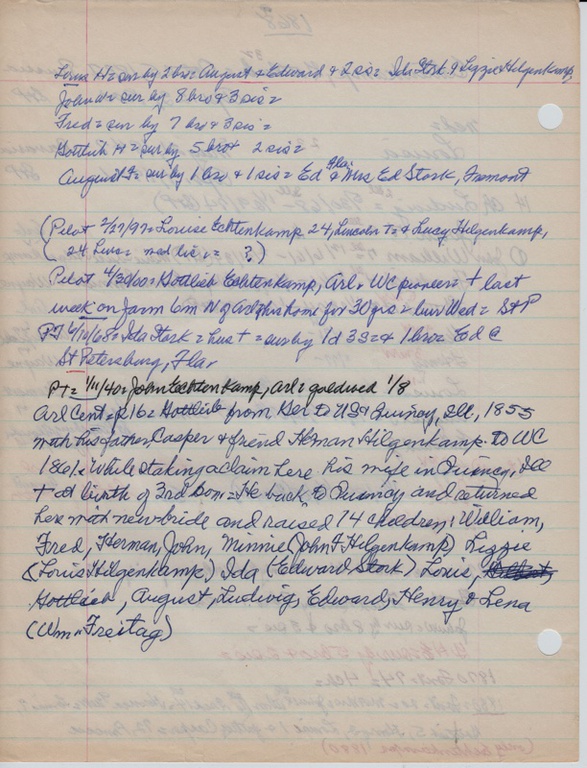 Louis H = sur by 2 bro = August & Edward & 2 sis = Ida Stork & Lizzie Hilgenkamp
John W = sur by 8 bro & 3 sis =
Fred = sur by 7 bro & 3 sis =
Gottlieb H = sur by 5 bro & 2 sis =
August F = sur by 1 bro & 1 sis = Ed Fla & Mrs Ed Stork, Fremont
(Pilot 2/27/97 = Louise Echtenkamp 24, Lincoln T = & Lucy Hilgenkamp,
(24 Linc = ?)
Pilot 4/30/00 = Gottlieb Echtenkamp, Arl & WC pioneer = + last
week on farm 6 m N of Arl his home for 30 yrs = bur Wed = St P
PT 6/10/68 = Ida Stork = hus + = sur by 1 d 3 S = & 1 bro = Ed C
St Petersburg, Fla.
PT = 1/11/40 = John Echtenkamp, Arl = gold wed 1/8
Arl Cent = p 16 = Gottlieb from Ger to US & Quincy, Ill, 1855
with his father Casper & friend Herman Hilgenkamp to WC
1861. While staking a claim here his wife in Quincy, Ill
+ at birth of 3rd son = He back to Quincy and returned
here with new bride and raised 14 children: William,
Fred, Herman, John, Minnie (John F Hilgenkamp) Lizzie
(Louis Hilgenkamp) Ida (Edward Stork) Louis,
Gottlieb, August, Ludwig, Edward, Henry & Lena
(Wm Freitag)